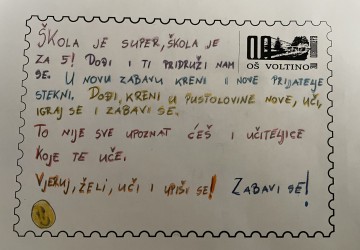 ŠKOLA JE SUPER, ŠKOLA JE
ZA 5! DOĐI I TI PRIDRUŽI NAM
SE. U NOVU ZABAVU KRENI I NOVE PRIJATELJE
STEKNI. DOĐI, KRENI U PUSTOLOVINE NOVE, UČI,
IGRAJ SE I ZABAVI SE.
TO NIJE SVE UPOZNAT ĆEŠ I UČITELJICE
KOJE TE UČE.
VJERUJ, ŽELI, UČI I UPIŠI SE! ZABAVI SE!
OŠ VOLTINO